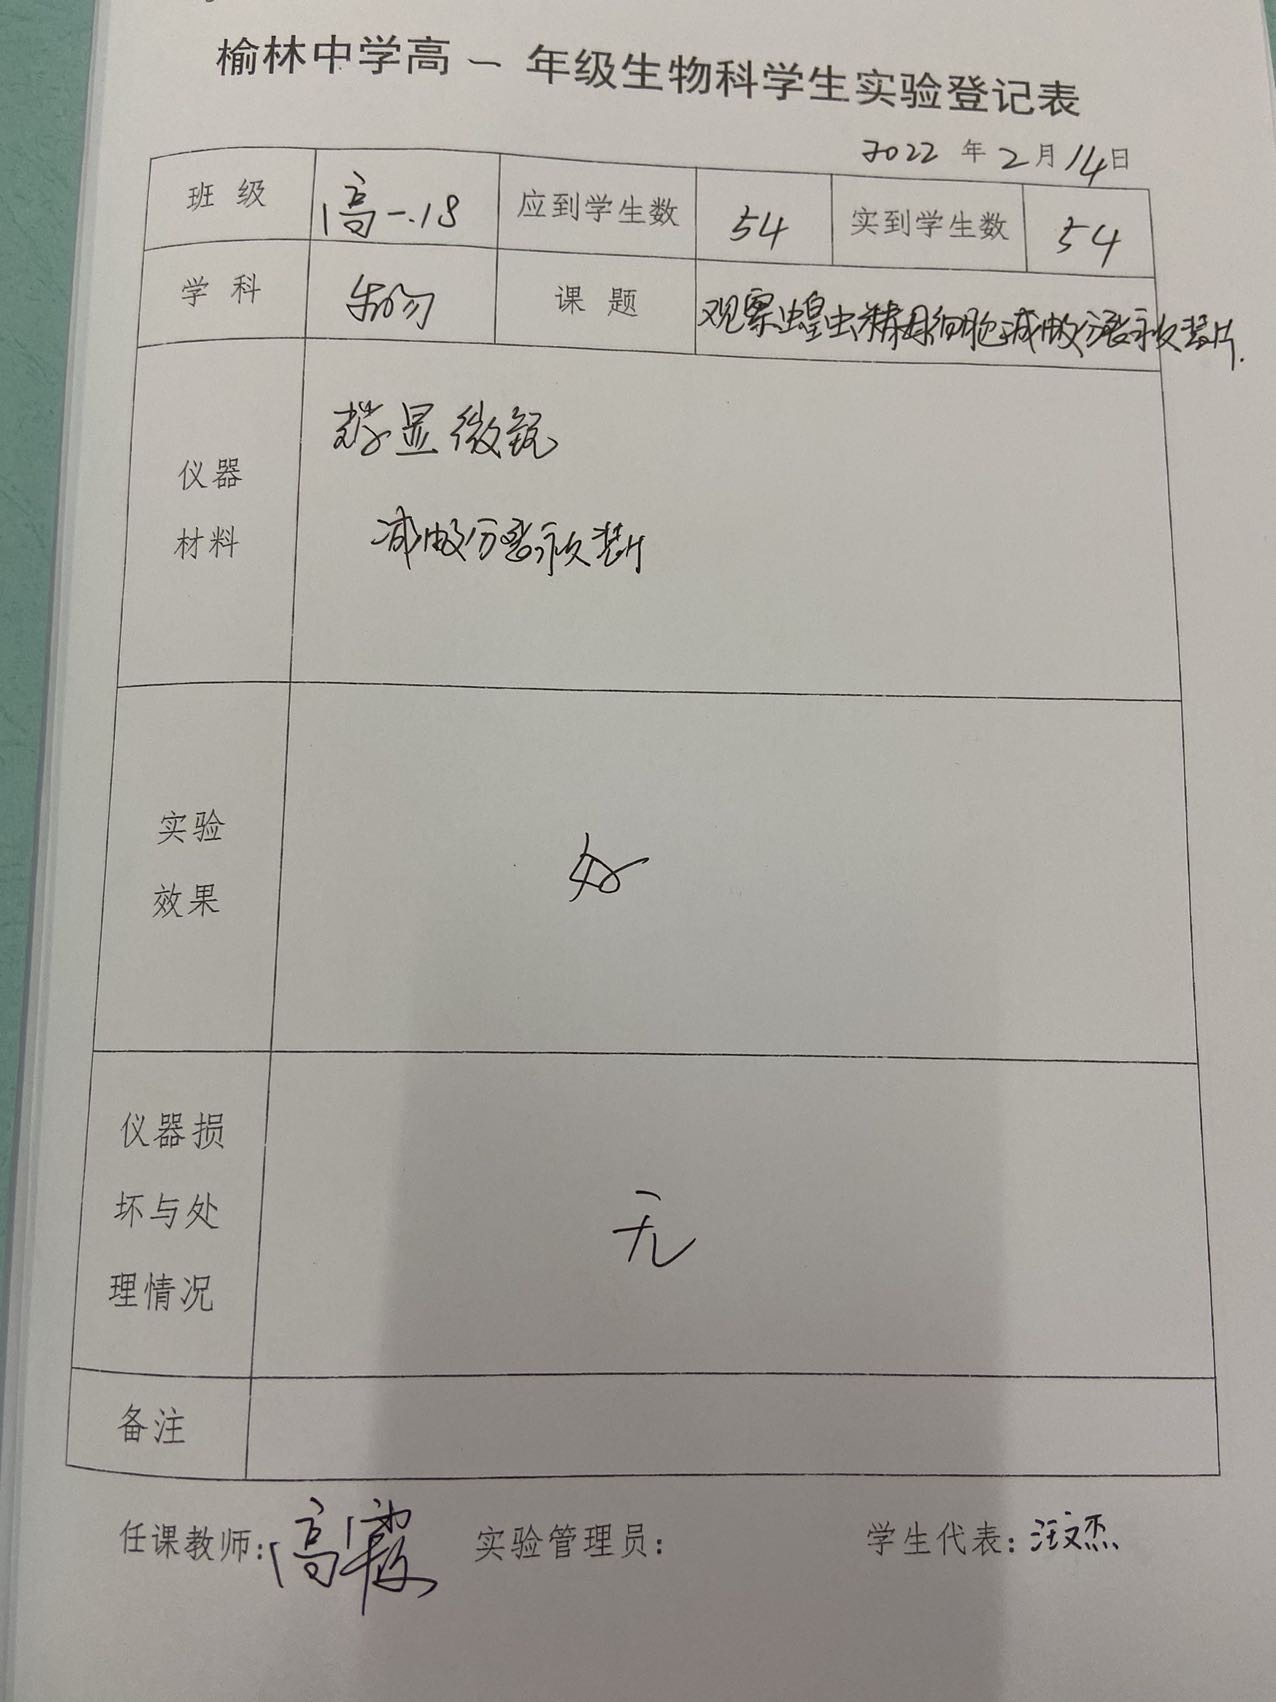 榆林中学高一年级生物科学生实验登记表
2022年2月14日
班级 高一.18 应到学生数 54 实到学生数 54
学科 生物 课题 观察蝗虫精母细胞减数分裂永久装片.
仪器材料
光学显微镜
减数分裂永久装片
实验效果 好
仪器损坏与处理情况 无
备注
任课教师:高霞 实验管理员: 学生代表:汪文杰